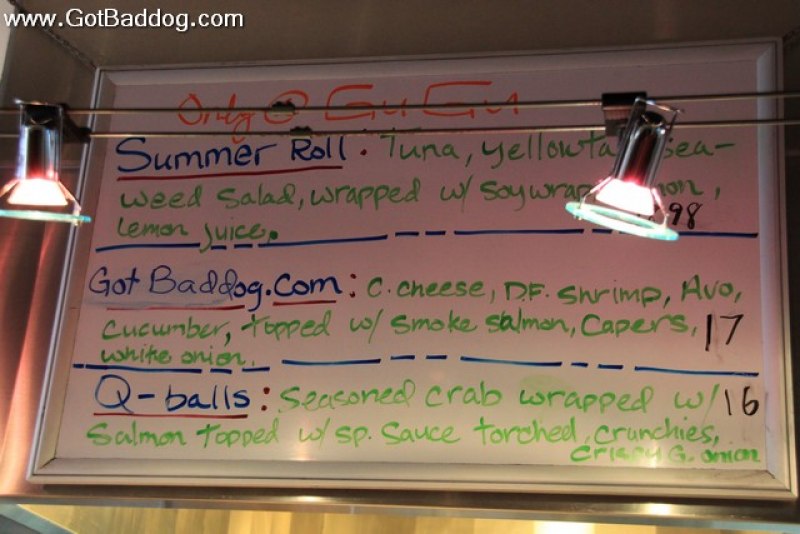 www.GotBaddog.com
Only @ GuGu
Summer Roll: Tuna, yellowta sea-
weed salad, wrapped w/ soywrap
lemon juice. 98
Got Baddog.com: C.cheese, D.F. shrimp, Avo,
cucumber, topped w/ smoke salmon, Capers, 17
white onion.
Q-balls: Seasoned crab wrapped w/ 16
Salmon topped w/ sp. sauce torched, crunchies,
crispy G. onion